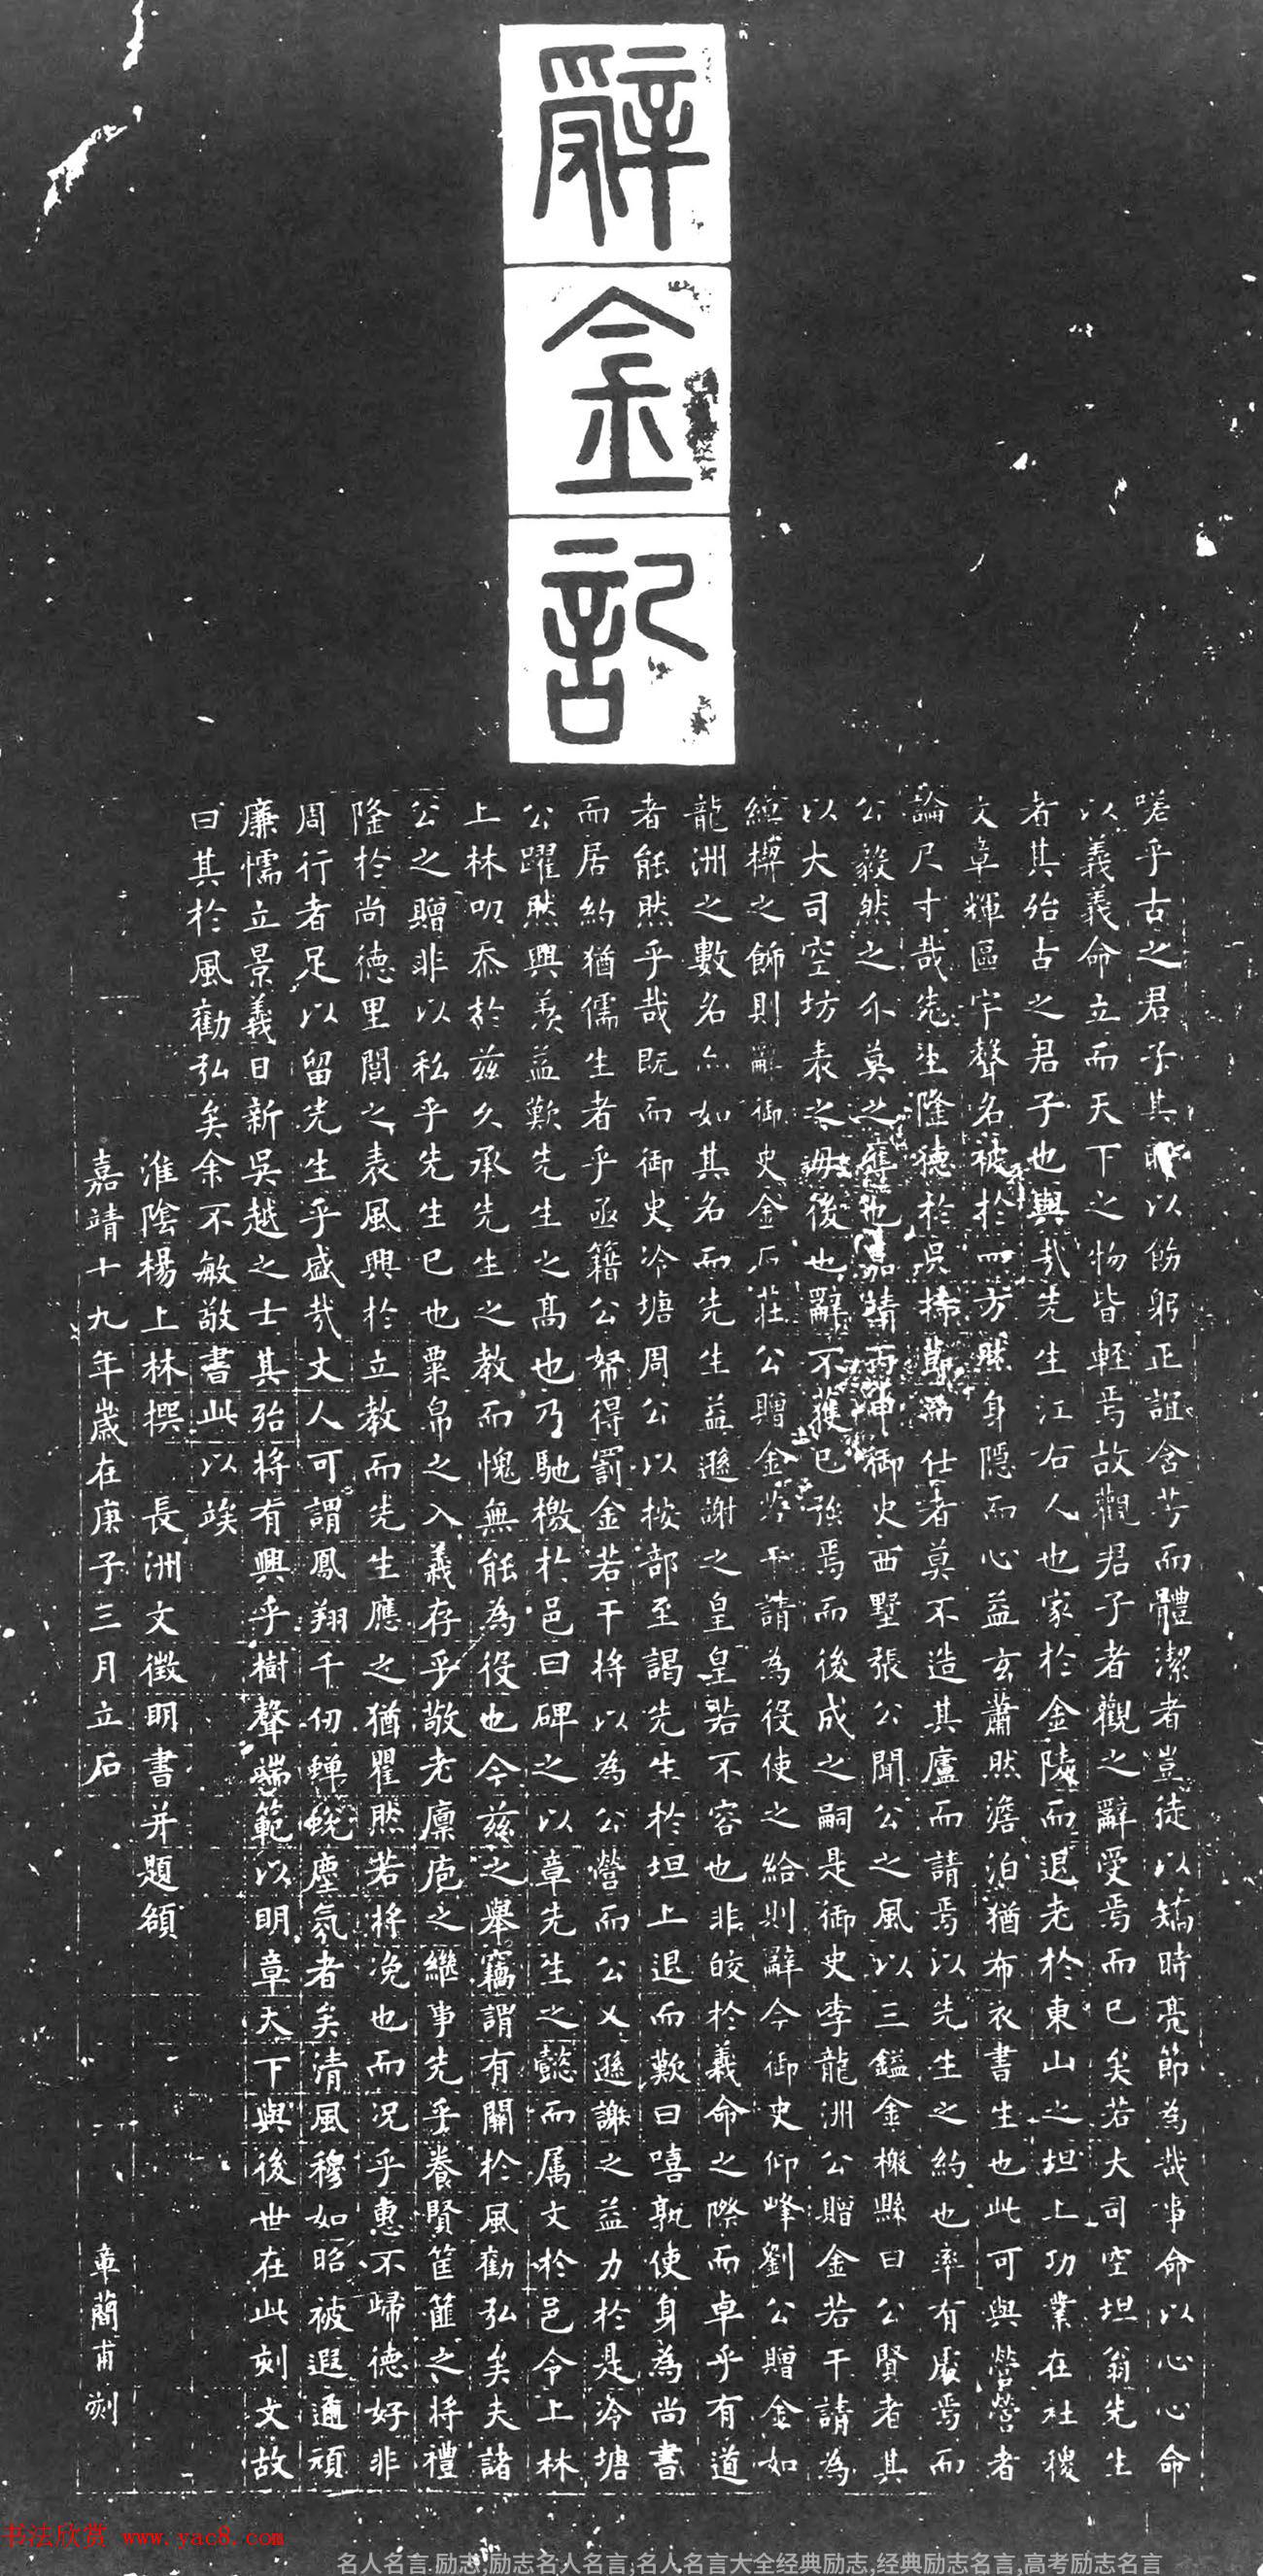 辭金記
嗟乎古之君子其以飭躬正誼含芳而體潔者豈徒以矯時亮節為哉事命以心心命
以義義命立而天下之物皆輕焉故觀君子者觀之辭受焉而已矣若大司空坦翁先生
者其殆古之君子也與哉先生江右人也家於金陵而退老於東山之坦上功業在社稷
文章輝區宇聲名被於四方然身隱而心益玄蕭然澹泊猶布衣書生也此可與營營者
論尺寸哉先生隆德於吳掃為仕者莫不造其廬而請焉以先生之約也率有處焉而
公毅然之介莫之奪也嘉靖丙申御史西墅張公聞公之風以三鎰金檄縣曰公賢者其
以大司空坊表之毋後也辭不獲已強焉而後成之嗣是御史李龍洲公贈金若干請為
綽楔之飾則辭御史金石莊公贈金若干請為役使之給則辭今御史仰峰劉公贈金如
龍洲之數名亦如其名而先生益遜謝之皇皇若不容也非皎於義命之際而卓乎有道
者能然乎哉既而御史冷塘周公以按部至謁先生於坦上退而歎曰嘻孰使身為尚書
而居約猶儒生者乎亟籍公帑得罰金若干將以為公營而公又遜謝之益力於是冷塘
公躍然興羨益歎先生之高也乃馳檄於邑曰碑之以章先生之懿而属文於邑令上林
上林叨忝於茲久承先生之教而愧無能為役也今茲之舉竊謂有關於風勸弘矣夫諸
公之贈非以私乎先生已也粟帛之入義存乎敬老廩庖之繼事先乎養賢筐篚之將禮
隆於尚德里閭之表風興於立教而先生應之猶瞿然若將浼也而況乎惠不歸德好非
周行者足以留先生乎盛哉丈人可謂鳳翔千仞蟬蛻塵氛者矣清風穆如昭被遐邇頑
廉懦立景義日新吳越之士其殆將有興乎樹聲端範以明章天下與後世在此刻文故
曰其於風勸弘矣余不敏敬書此以竢
淮陰楊上林撰 長洲文徵明書并題額
嘉靖十九年歲在庚子三月立石 章簡甫刻
书法欣赏 www.yac8.com
名人名言.励志,励志名人名言,名人名言大全经典励志,经典励志名言,高考励志名言